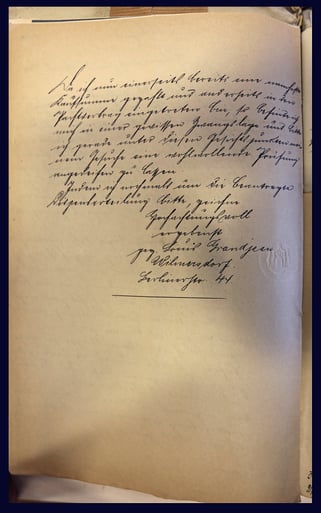 Da ich nun einerseits bereits eine namhafte
Kaufsumme gezahlt und anderseits in den
Pachtvertrag eingetreten bin, so befinde ich
mich in einer gewissen Zwangslage und bitte
ich gerade unter diesen Gesichtspunkten mei-
nem Gesuche eine wohlwollende Prüfung
angedeihen zu lassen.
Indem ich nochmals um die beantragte
Dispenserteilung bitte, zeichne
Hochachtungsvoll
ergebenst
gez. Louis Grandjean
Wilmersdorf.
Berlinerstr. 44.